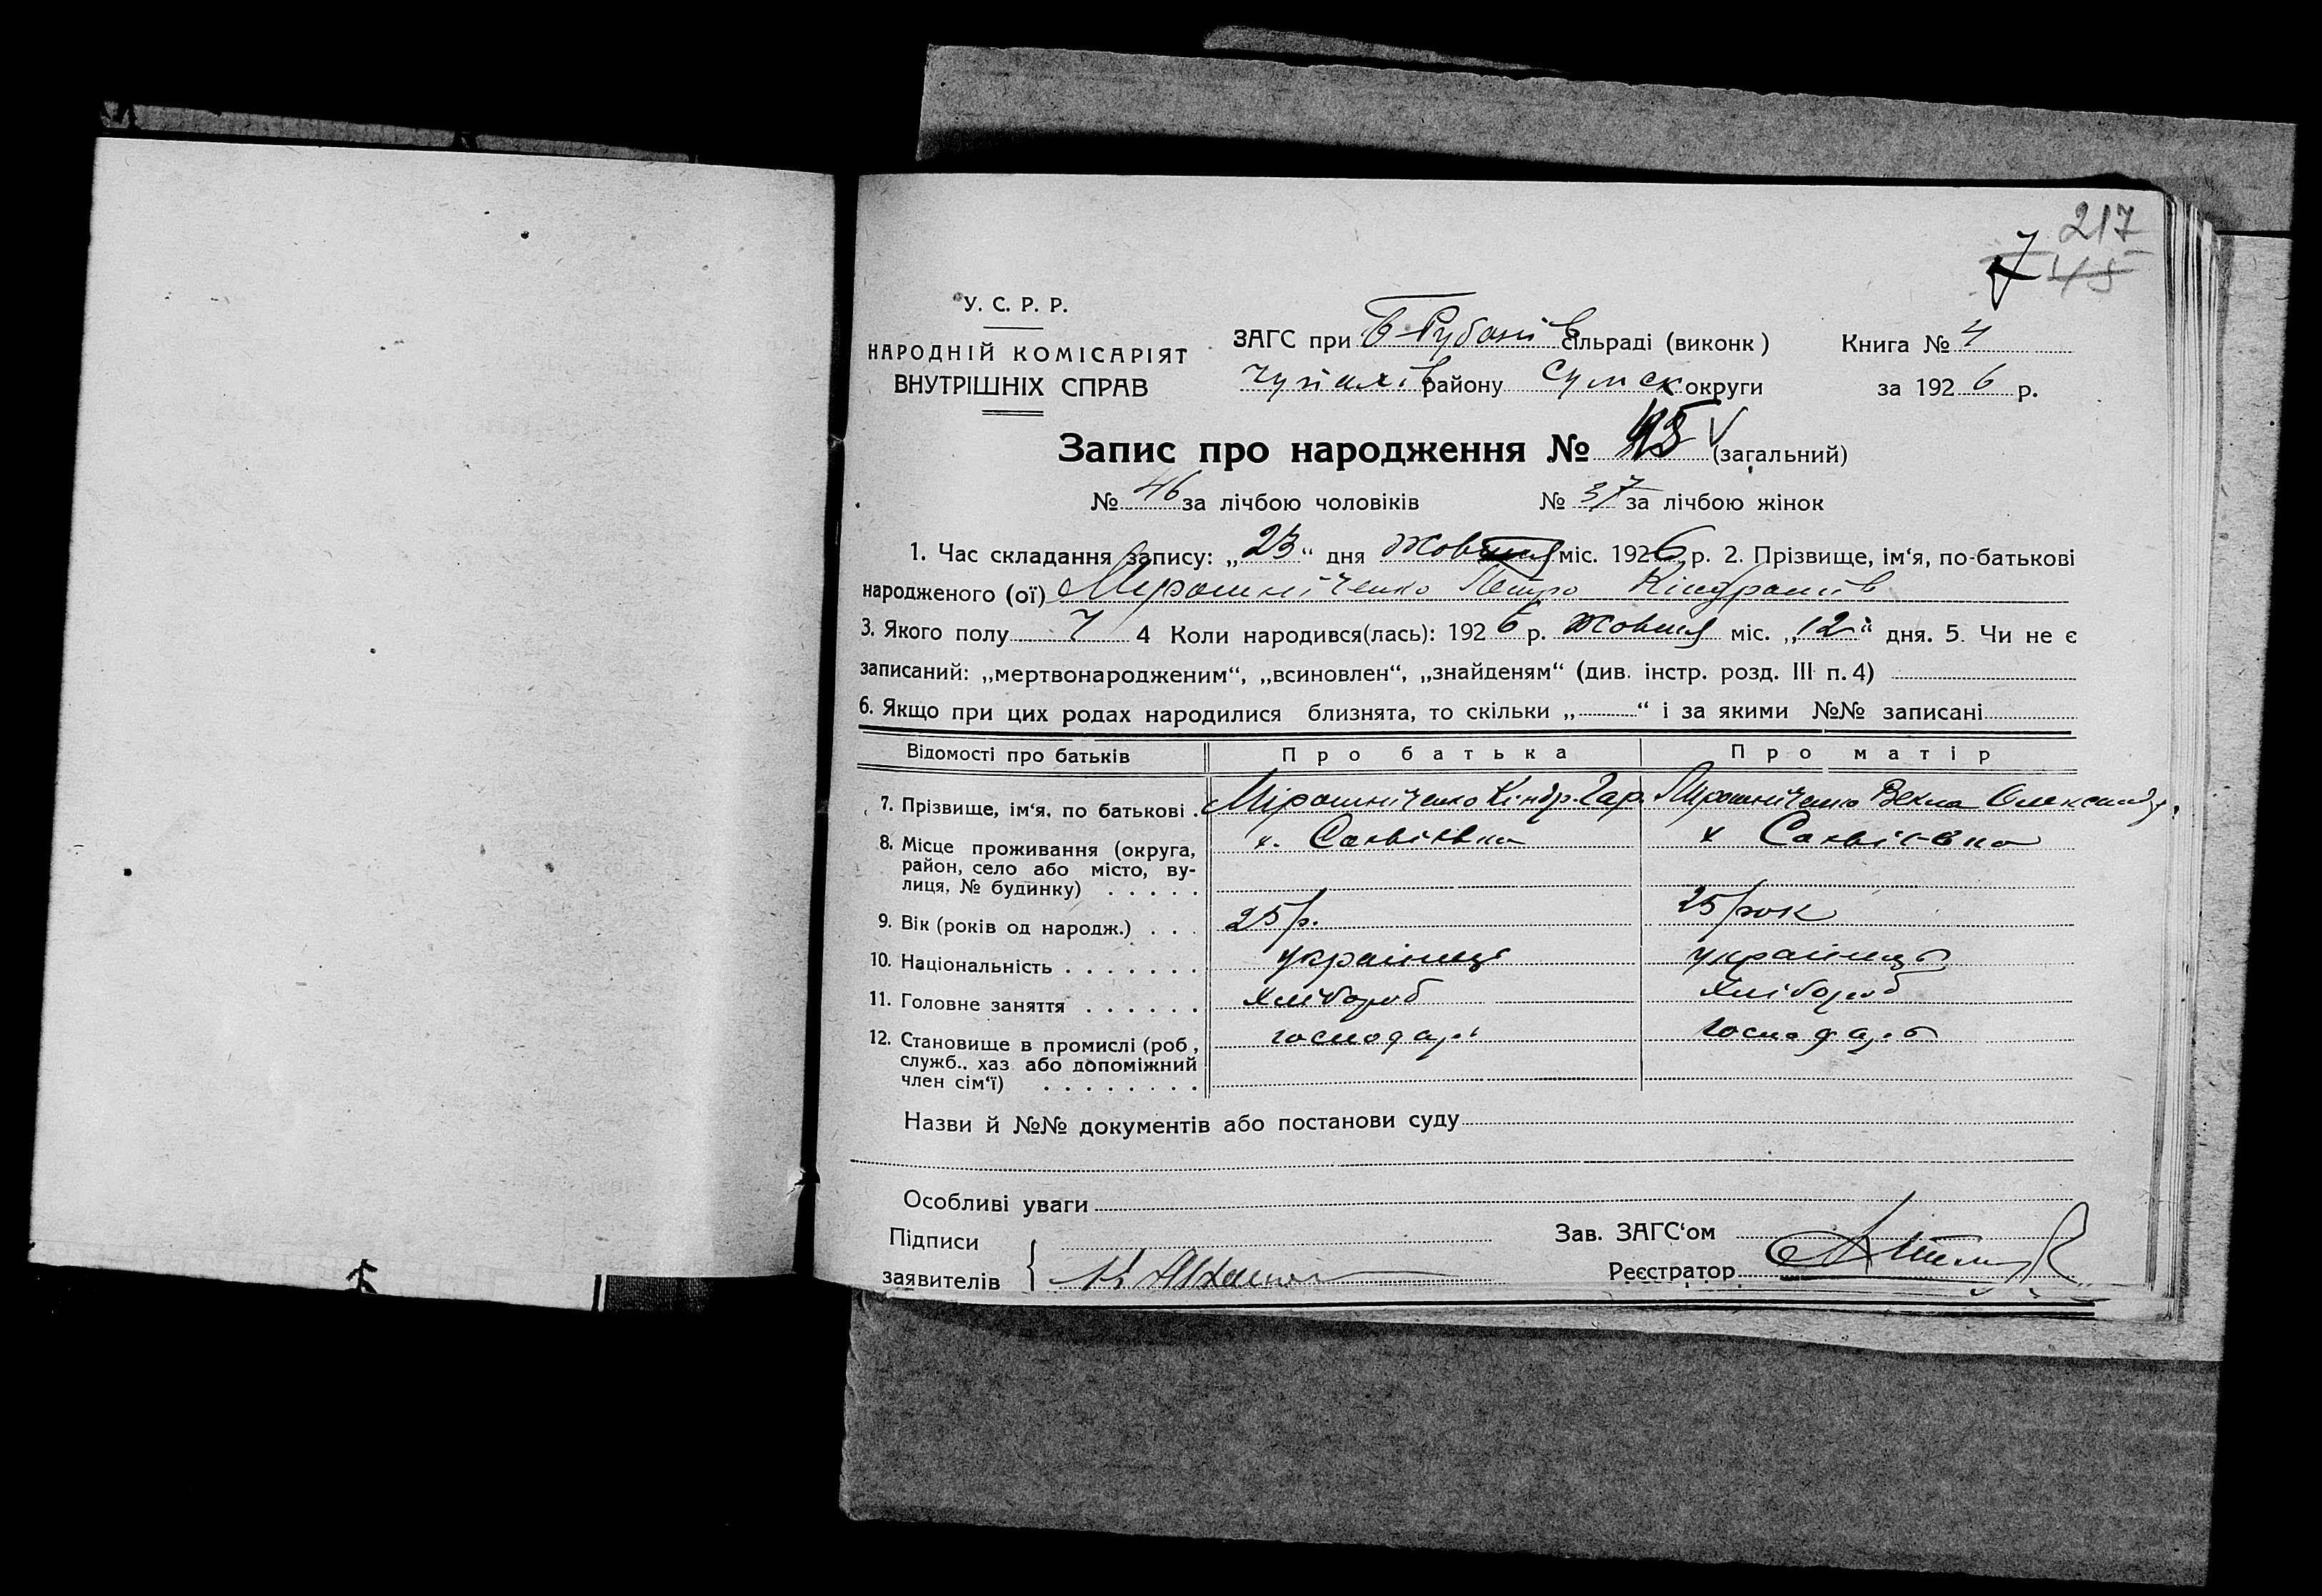 217
7 45
У. С. Р. Р.
НАРОДНІЙ КОМІСАРІЯТ
ВНУТРІШНІХ СПРАВ
ЗАГС при Б-Рубанів сільраді (виконк)
Книга № 4
району Сумск округи
за 1926 р.
Запис про народження № (загальний)
№ 46 за лічбою чоловіків № 37 за лічбою жінок
1. Час складання запису: „23“ дня Жовтня міс. 1926 р. 2. Прізвище, ім‘я, по-батькові
народженого (ої) Мірошніченко Петро Кіндратів
3. Якого полу Ч 4 Коли народився(лась): 1926 р. Жовтня міс. „12“ дня. 5. Чи не є
записаний: „мертвонародженим“, „всиновлен“, „знайденям“ (див. інстр. розд. III п. 4)
6. Якщо при цих родах народилися близнята, то скільки „ “ і за якими №№ записані
Відомості про батьків Про батька Про матір
7. Прізвище, ім‘я, по батькові . Мірошніченко Кіндр. Гар. Мірошніченко Векла Олександр.
8. Місце проживання (округа, район, село або місто, ву-
лиця, № будинку) . . . . . х. х
9. Вік (років од народж.) . . . 25 р. 25 рок
10. Національність . . . . . . . українець українець
11. Головне заняття . . . . . . хлібороб хлібороб
12. Становище в промислі (роб, господарь господарь
служб.. хаз або допоміжний
член сім‘ї) . . . . . . . .
Назви й №№ документів або постанови суду
Особливі уваги
Підписи
заявителів
Зав. ЗАГС‘ом
Реєстратор